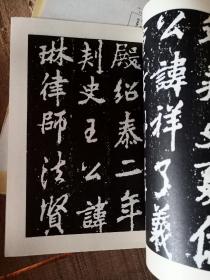 公諱祥了義
殿紹泰二年
刾史王公諱
琳律師法賢